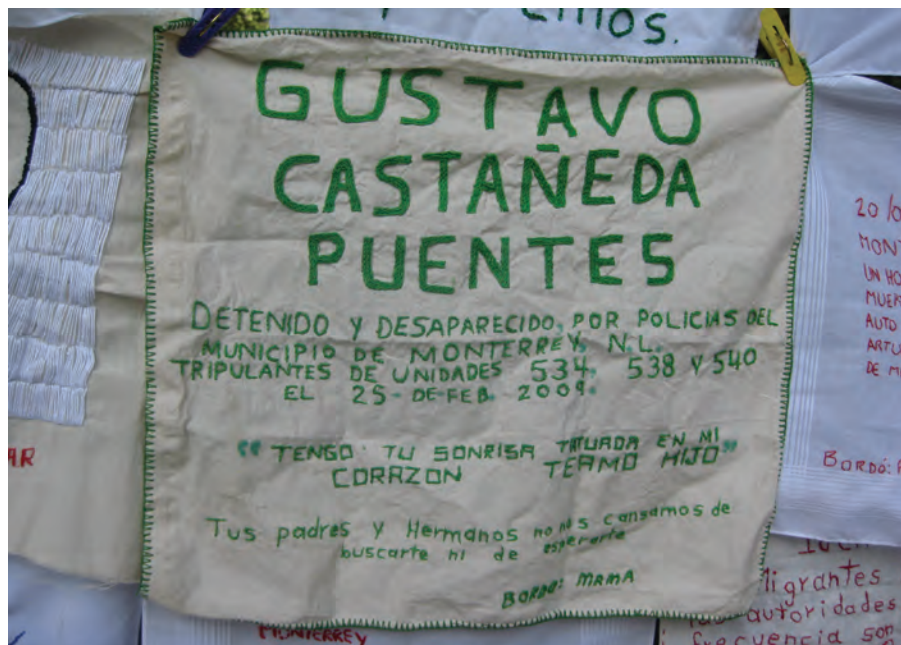 CIMOS.
GUSTAVO
CASTAÑEDA
PUENTES
DETENIDO Y DESAPARECIDO, POR POLICIAS DEL
MUNICIPIO DE MONTERREY, N.L.
TRIPULANTES DE UNIDADES 534. 538 Y 540
EL 25- DE-FEB. 2009.
“ TENGO TU SONRISA TATUADA EN MI
CORAZON TEAMO HIJO”
Tus padres y Hermanos no nos cansamos de
buscarte ni de esperarte
BORDO: MAMA
AR
20/0
MONT
UN HO
MUER
AUTO
ARTU
DE M
BORDÓ:
Migrantes
autoridades
frecuencia son
MONTERREY